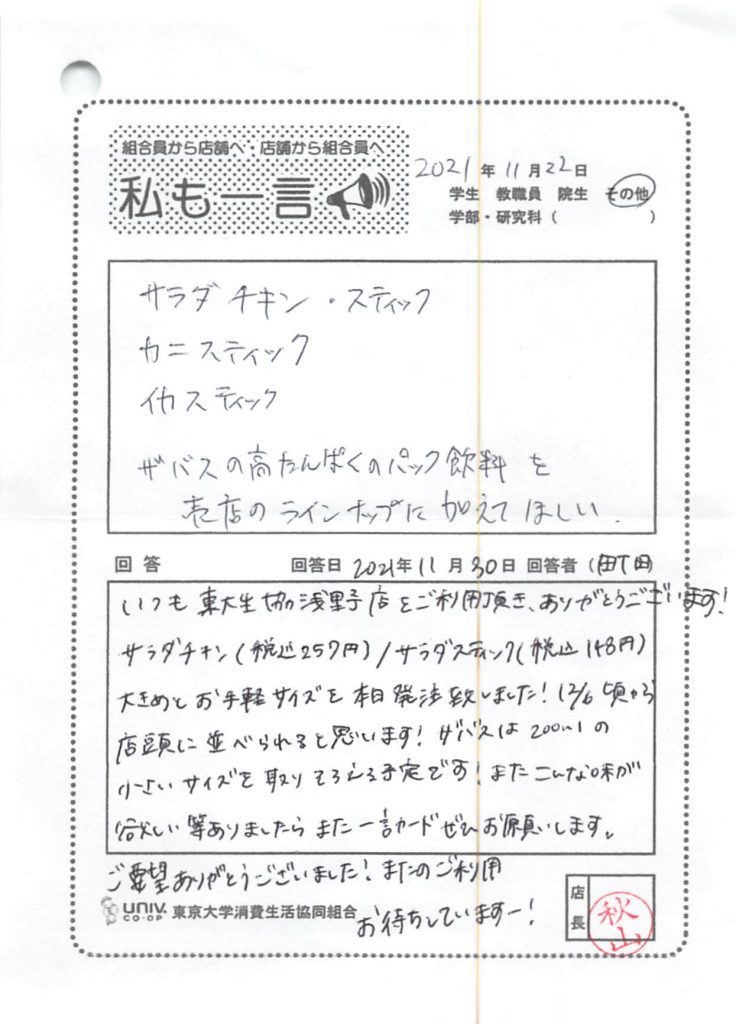 組合員から店舗へ・店舗から組合員へ
私も一言
2021年11月22日
学生 教職員 院生 その他
学部・研究科( )
サラダチキン・スティック
カニスティック
イカスティック
ザバスの高たんぱくのパック飲料を
売店のラインナップに加えてほしい.
回答 回答日 2021年11月30日 回答者 (町田
いつも東大生協浅野店をご利用頂き、ありがとうございます!
サラダチキン(税込257円)/サラダスティック(税込148円)
大きめとお手軽サイズを本日発注致しました!12/6頃から
店頭に並べられると思います!ザバスは200mlの
小さいサイズを取りそろえる予定です!またこんな味が
欲しい等ありましたらまた一言カードぜひお願いします。
ご要望ありがとうございました!またのご利用
お待ちしていますー!
UNIV. CO-OP 東京大学消費生活協同組合
店長
秋山